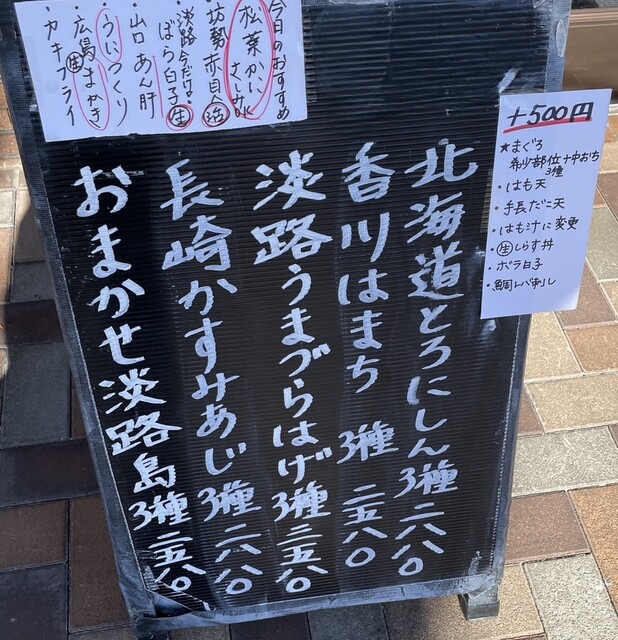 今日のおすすめ
松葉がに
さしみOK
坊勢赤貝 活
・淡路今だけ!
ばら白子 生
・山口あん肝
・うにつくり
・広島生まがき
・カキフライ
+500円
★まぐろ
希少部位+中おち
3種
・はも天
・手長だこ天
・はも汁に変更
・生しらす丼
・ボラ白子
・鯛レバ刺し
北海道とろにしん3種 二八八〇
香川はまち 3種 二五八〇
淡路うまづらはげ3種 二五八〇
長崎かすみあじ3種 二八八〇
おまかせ淡路島3種 二五八〇